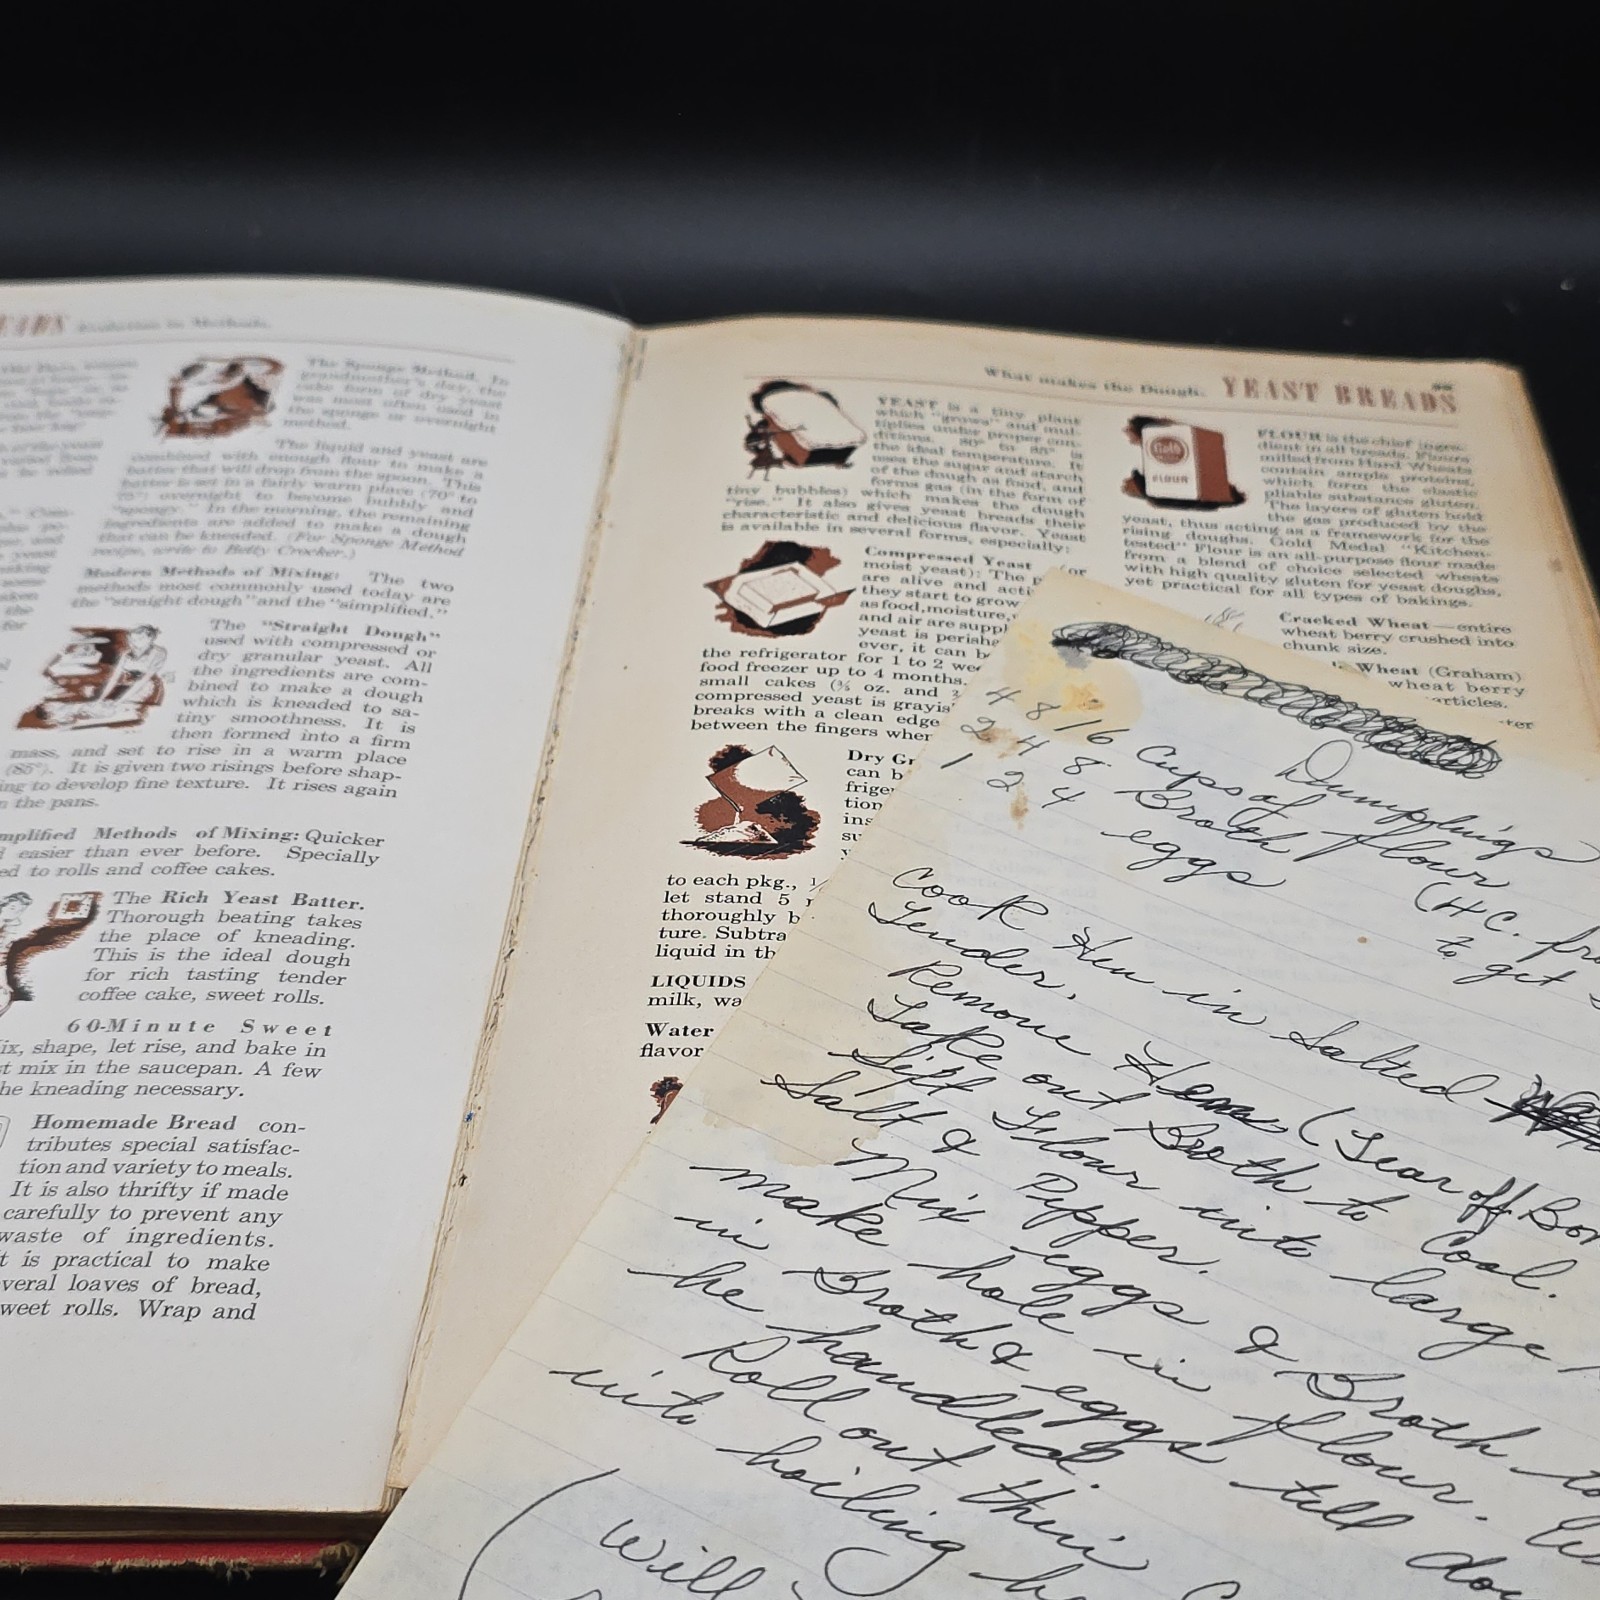 Evolution in Methods.
The Sponge Method. In
grandmother's day, the
cake form of dry yeast
was most often used in
the sponge or overnight
method.
The liquid and yeast are
combined with enough flour to make a
batter that will drop from the spoon. This
batter is set in a fairly warm place (70° to
75°) overnight to become bubbly and
"spongy." In the morning, the remaining
ingredients are added to make a dough
that can be kneaded. (For Sponge Method
recipe, write to Betty Crocker.)
Modern Methods of Mixing: The two
methods most commonly used today are
the "straight dough" and the "simplified."
The "Straight Dough"
used with compressed or
dry granular yeast. All
the ingredients are com-
bined to make a dough
which is kneaded to sa-
tiny smoothness. It is
then formed into a firm
mass, and set to rise in a warm place
(85°). It is given two risings before shap-
ing to develop fine texture. It rises again
in the pans.
mplified Methods of Mixing: Quicker
d easier than ever before. Specially
ed to rolls and coffee cakes.
The Rich Yeast Batter.
Thorough beating takes
the place of kneading.
This is the ideal dough
for rich tasting tender
coffee cake, sweet rolls.
60-Minute Sweet
ix, shape, let rise, and bake in
st mix in the saucepan. A few
he kneading necessary.
Homemade Bread con-
tributes special satisfac-
tion and variety to meals.
It is also thrifty if made
carefully to prevent any
waste of ingredients.
it is practical to make
everal loaves of bread,
weet rolls. Wrap and
What makes the Dough. YEAST BREADS
YEAST is a tiny plant
which "grows" and mul-
tiplies under proper con-
ditions. 80° to 85° is
the ideal temperature. It
uses the sugar and starch
of the dough as food, and
forms gas (in the form of
tiny bubbles) which makes the dough
"rise." It also gives yeast breads their
characteristic and delicious flavor. Yeast
is available in several forms, especially:
Compressed Yeast (or
moist yeast): The p
are alive and acti
they start to grow
as food, moisture,
and air are suppl
yeast is perisha
ever, it can b
the refrigerator for 1 to 2 wee
food freezer up to 4 months.
small cakes (⅗ oz. and
compressed yeast is grayis
breaks with a clean edge
between the fingers when
Dry Gr
can b
frige
tion
ins
su
to each pkg.,
let stand 5
thoroughly b
ture. Subtra
liquid in th
LIQUIDS
milk, wa
Water
flavor
Gold
FLOUR
FLOUR is the chief ingre-
dient in all breads. Flours
milled from Hard Wheats
contain ample proteins,
which form the elastic
pliable substance gluten.
The layers of gluten hold
the gas produced by the
yeast, thus acting as a framework for the
rising doughs. Gold Medal "Kitchen-
tested" Flour is an all-purpose flour made
from a blend of choice selected wheats
with high quality gluten for yeast doughs,
yet practical for all types of bakings.
Cracked Wheat—entire
wheat berry crushed into
chunk size.
Wheat (Graham)
wheat berry
articles.
Dumplings
4 8 16 Cups of flour
2 4 8 Broth (HC. fr
1 2 4 eggs to get
Cook Hen in Salted
Tender.
Remove Hens (Tear off Bon
Take out Broth to Cool.
Sift Flour into large
Salt & Pepper.
Mix eggs & Broth to
make hole in flour.
in Broth & eggs till dou
be handled.
Roll out thin
into boiling
(Will